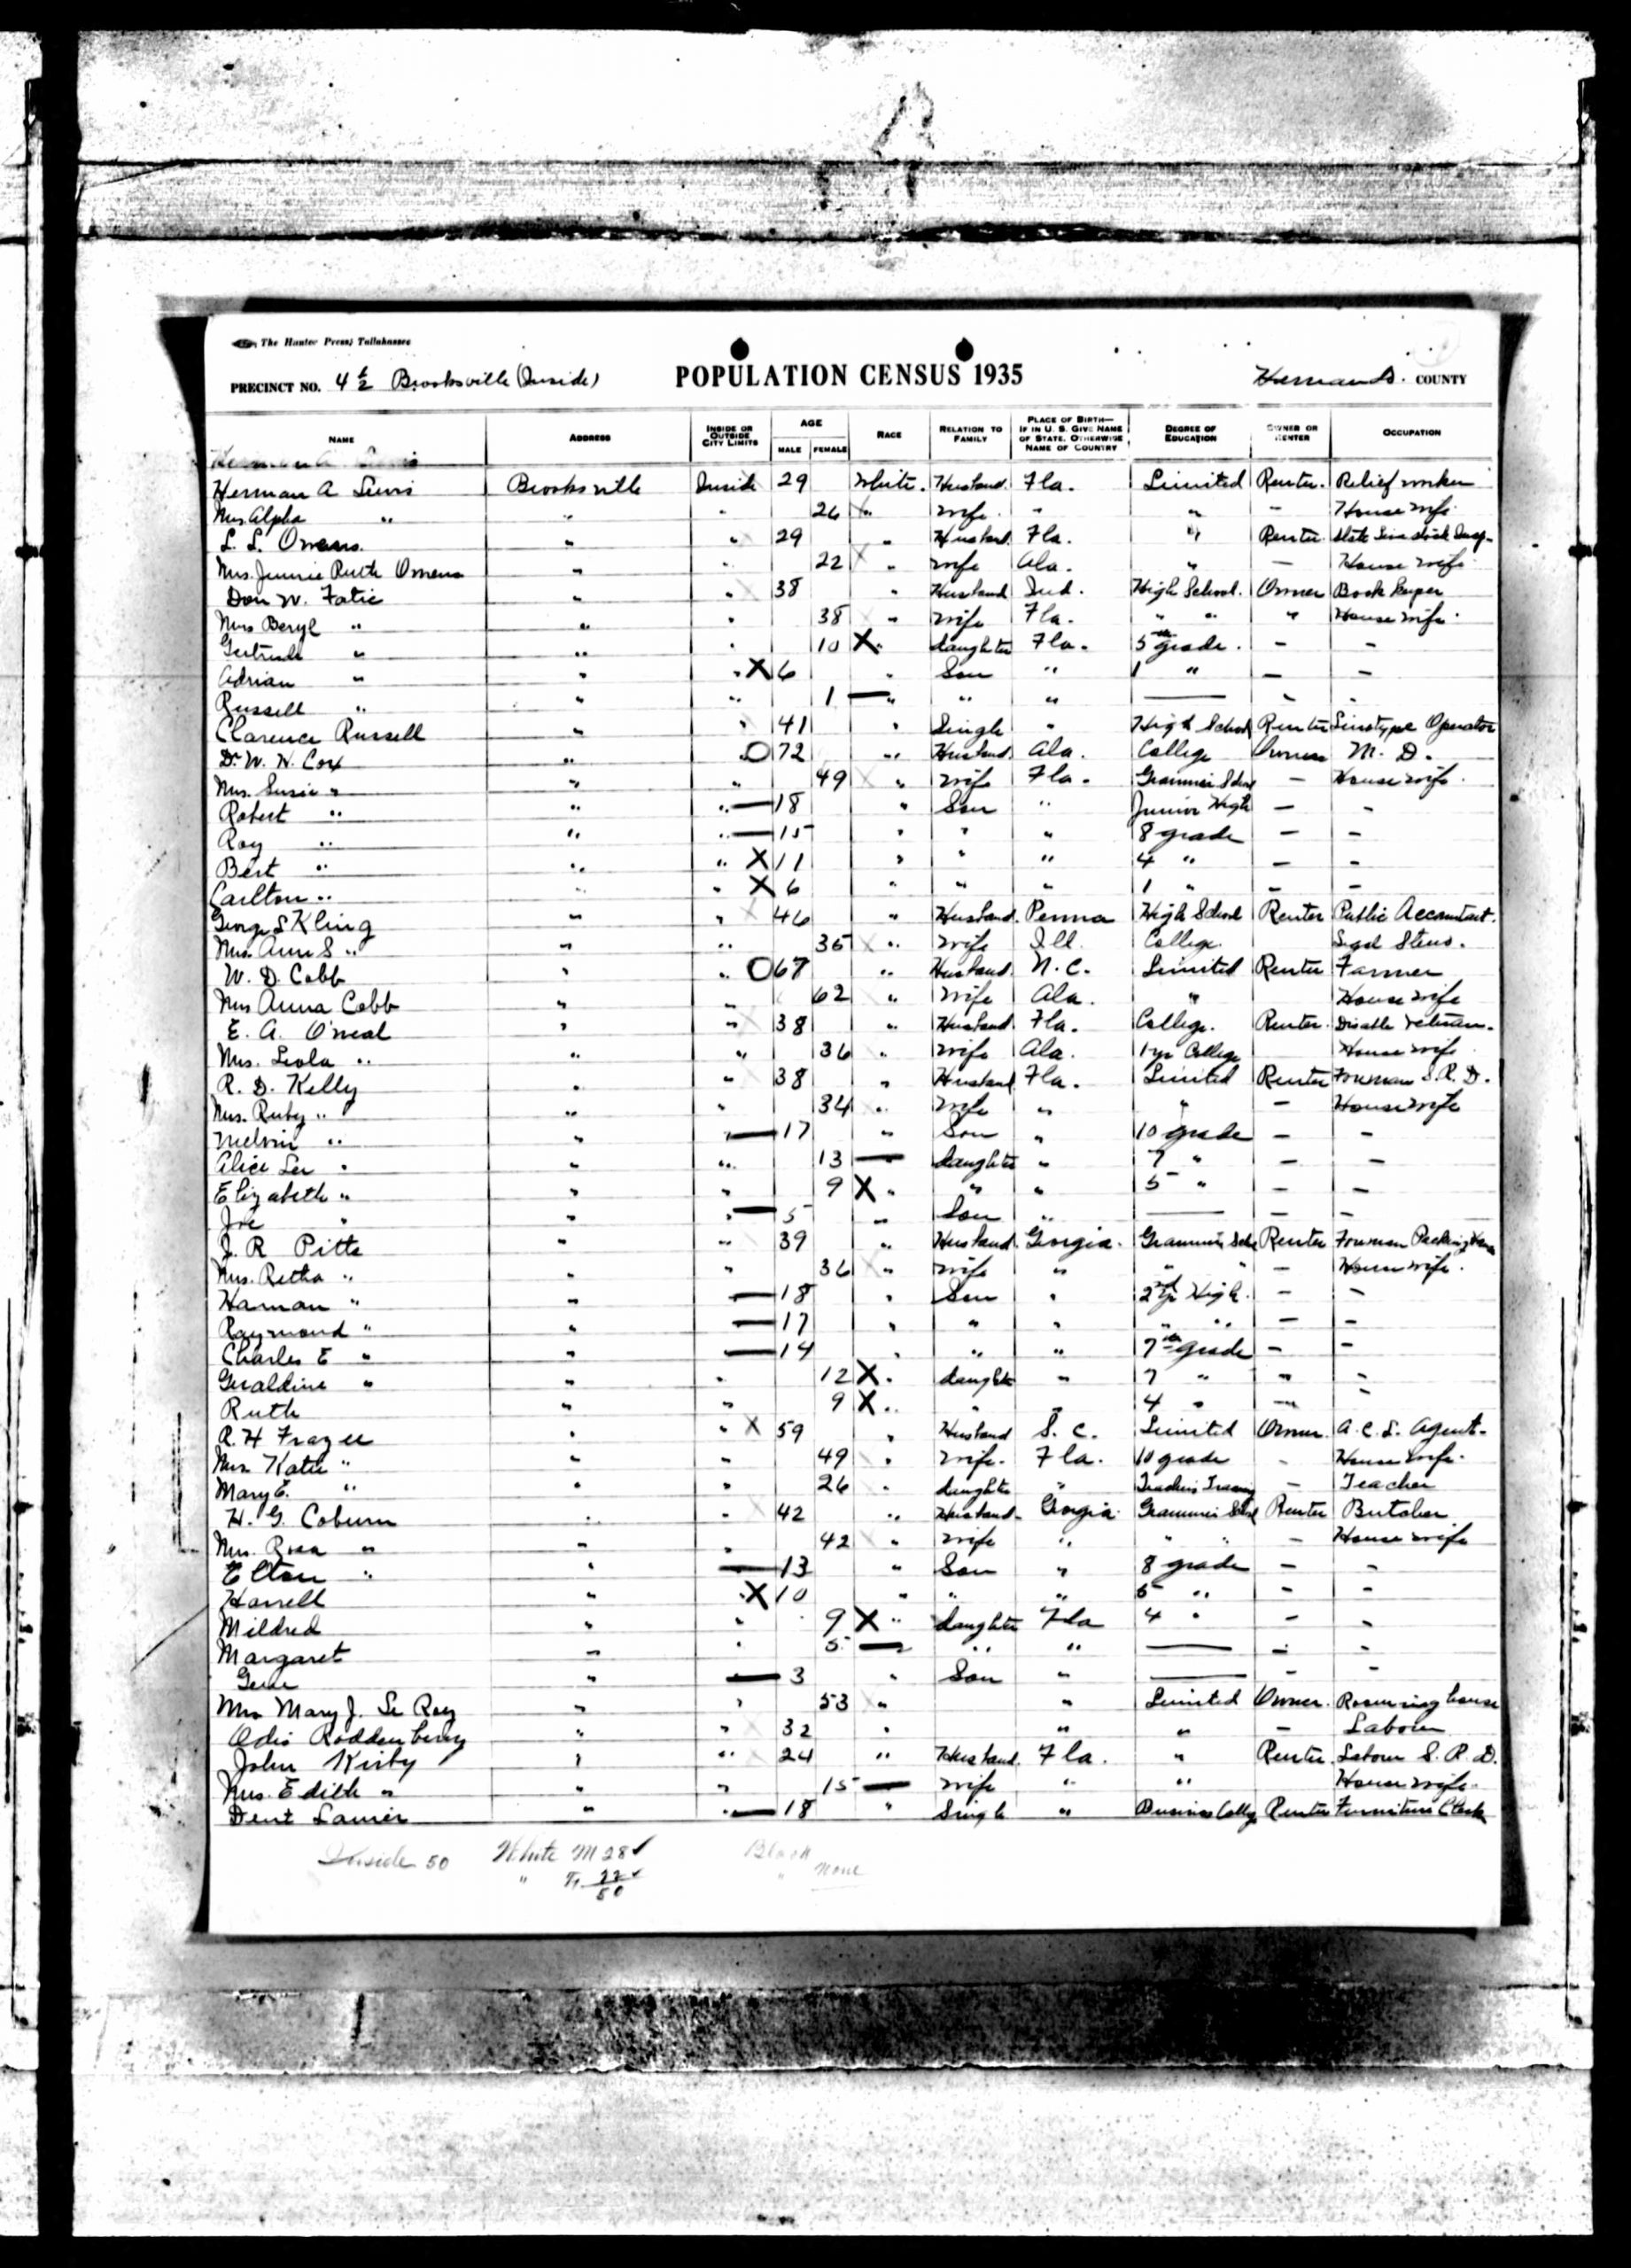 The Hunter Press, Tallahassee
POPULATION CENSUS 1935
PRECINCT NO. 4 1/2 Brooksville (Inside) Hernando. COUNTY
NAME ADDRESS INSIDE OR OUTSIDE CITY LIMITS AGE MALE FEMALE RACE RELATION TO FAMILY PLACE OF BIRTH—IF IN U. S. GIVE NAME OF STATE. OTHERWISE NAME OF COUNTRY DEGREE OF EDUCATION OWNER OR RENTER OCCUPATION
Herman A Lewis Brooksville Inside 29 White. Husband Fla. Limited Renter. Relief worker
Mrs. Alpha " " " 26 " wife. " " - House wife.
L. L. Owens. " " 29 " Husband Fla. " Renter. State Live stock Insp.
Mrs. Jennie Ruth Owens " " 22 " wife Ala. " - House wife.
Don W. Fatic " " 38 " Husband Ind. High School. Owner Book keeper
Mrs Beryl " " " 38 " wife Fla. " " " House wife.
Gertrude " " " 10 X " daughter Fla. 5th grade. - -
Adrian " " " X 6 " Son " 1 " - -
Russell " " " 1 — " " " — - -
Clarence Russell " " 41 " Single " High School Renter Linotype Operator
Dr. W. H. Cox " " O 72 " Husband Ala. College Owner M. D.
Mrs. Susie " " " 49 " wife Fla. Grammer School - House wife.
Robert " " " — 18 " Son " Junior High - -
Roy " " " — 15 " " " 8 grade - -
Bert " " " X 11 " " " 4 " - -
Carlton " " " X 6 " " " 1 " - -
George S Kling " " 46 " Husband. Penna High School Renter Public Accountant.
Mrs. Ann S " " " 35 " wife Ill. College. Legal Steno.
W. D. Cobb " " O 67 " Husband N. C. Limited Renter Farmer
Mrs Anna Cobb " " 62 " wife Ala. " House wife
E. A. O'neal " " 38 " Husband Fla. College. Renter. Disable veteran.
Mrs. Leola " " " 36 " wife Ala. 1 yr College House wife
R. D. Kelly " " 38 " Husband Fla. Limited Renter Foreman S. R. D.
Mrs. Ruby " " " 34 " wife " " - House wife
Melvin " " " — 17 " Son " 10 grade - -
Alice Lee " " " 13 — daughter " 7 " - -
Elizabeth " " " 9 X " " " 5 " - -
Joe " " " — 5 " Son " — - -
J. R Pitts " " 39 " Husband. Georgia. Grammer School Renter Foreman Packing House
Mrs. Retha " " " 36 " wife " " " - House wife.
Haman " " — 18 " Son " 2nd yr High. - -
Raymond " " — 17 " " " " " - -
Charles E " " — 14 " " " 7th grade - -
Geraldine " " " 12 X " daughter " 7 " - -
Ruth " " 9 X " " " 4 " - -
R. H Frazee " " X 59 " Husband S. C. Limited Owner. A. C. L. Agent.
Mrs Katie " " " 49 " wife. Fla. 10 grade - House wife.
Mary E. " " " 26 " daughter " Teachers Training - Teacher
H. G. Coburn " " 42 " Husband - Georgia. Grammer School Renter Butcher
Mrs. Rosa " " " 42 " wife " " " - House wife
Elton " " — 13 " Son " 8 grade - -
Harrell " " X 10 " " " 5 " - -
Mildred " " 9 X " daughter Fla 4 " - -
Margaret " " 5 — " " — - -
Gene " — 3 " Son " — - -
Mrs Mary J. Le Roy " " 53 " " Limited Owner. Rooming house
Odis Roddenberry " " 32 " " " - Laborer
John Kirby " " 24 " Husband. Fla. " Renter. Laborer S. R. D.
Mrs. Edith " " " 15 — wife " " House wife.
Dent Lanier " " — 18 " Single " Business College Renter Furniture Clerk
Inside 50 White M 28 Black
" F. 22 " None
50